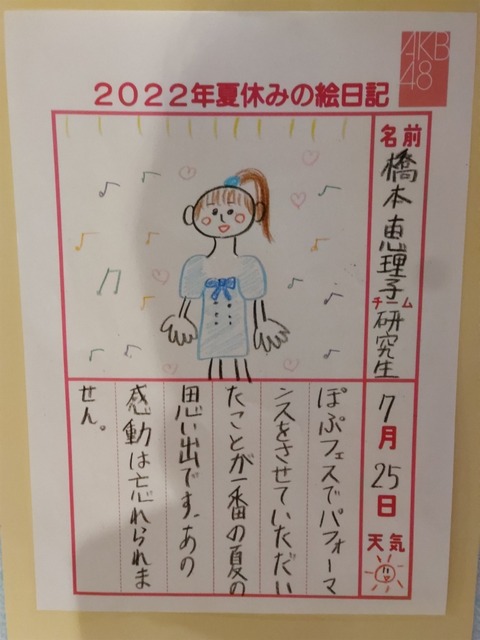 AKB
48
2022年夏休みの絵日記
名前
橋本恵理子
チーム
研究生
7月25日
天気
ぽぷフェスでパフォーマ
ンスをさせていただい
たことが一番の夏の
思い出です。あの
感動は忘れられま
せん。